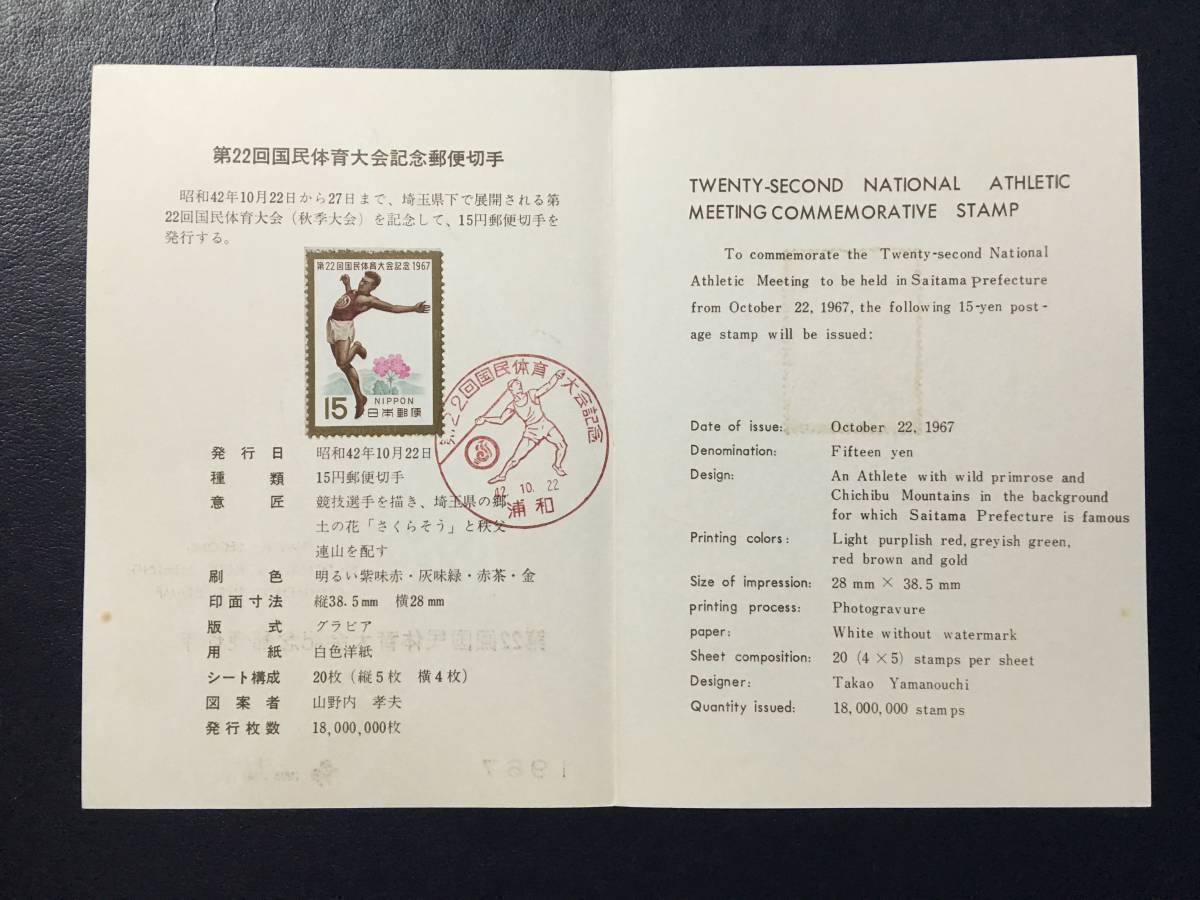 第22回国民体育大会記念郵便切手
昭和42年10月22日から27日まで、埼玉県下で展開される第
22回国民体育大会（秋季大会）を記念して、15円郵便切手を
発行する。
第22回国民体育大会記念 1967
15
NIPPON
日本郵便
第22回国民体育大会記念
42.10.22
浦和
発行日 昭和42年10月22日
種類 15円郵便切手
意匠 競技選手を描き、埼玉県の郷
土の花「さくらそう」と秩父
連山を配す
刷色 明るい紫味赤・灰味緑・赤茶・金
印面寸法 縦38.5mm 横28mm
版式 グラビア
用紙 白色洋紙
シート構成 20枚（縦5枚 横4枚）
図案者 山野内 孝夫
発行枚数 18,000,000枚
TWENTY-SECOND NATIONAL ATHLETIC
MEETING COMMEMORATIVE STAMP
To commemorate the Twenty-second National
Athletic Meeting to be held in Saitama prefecture
from October 22, 1967, the following 15-yen post-
age stamp will be issued:
Date of issue: October 22, 1967
Denomination: Fifteen yen
Design: An Athlete with wild primrose and
Chichibu Mountains in the background
for which Saitama Prefecture is famous
Printing colors: Light purplish red, greyish green,
red brown and gold
Size of impression: 28 mm × 38.5 mm
printing process: Photogravure
paper: White without watermark
Sheet composition: 20 (4×5) stamps per sheet
Designer: Takao Yamanouchi
Quantity issued: 18,000,000 stamps